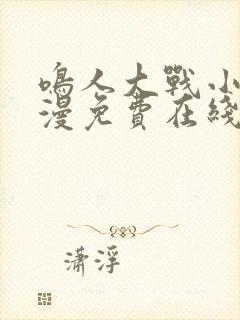 鳴人大戰小
漫免費在綫
瀟浮